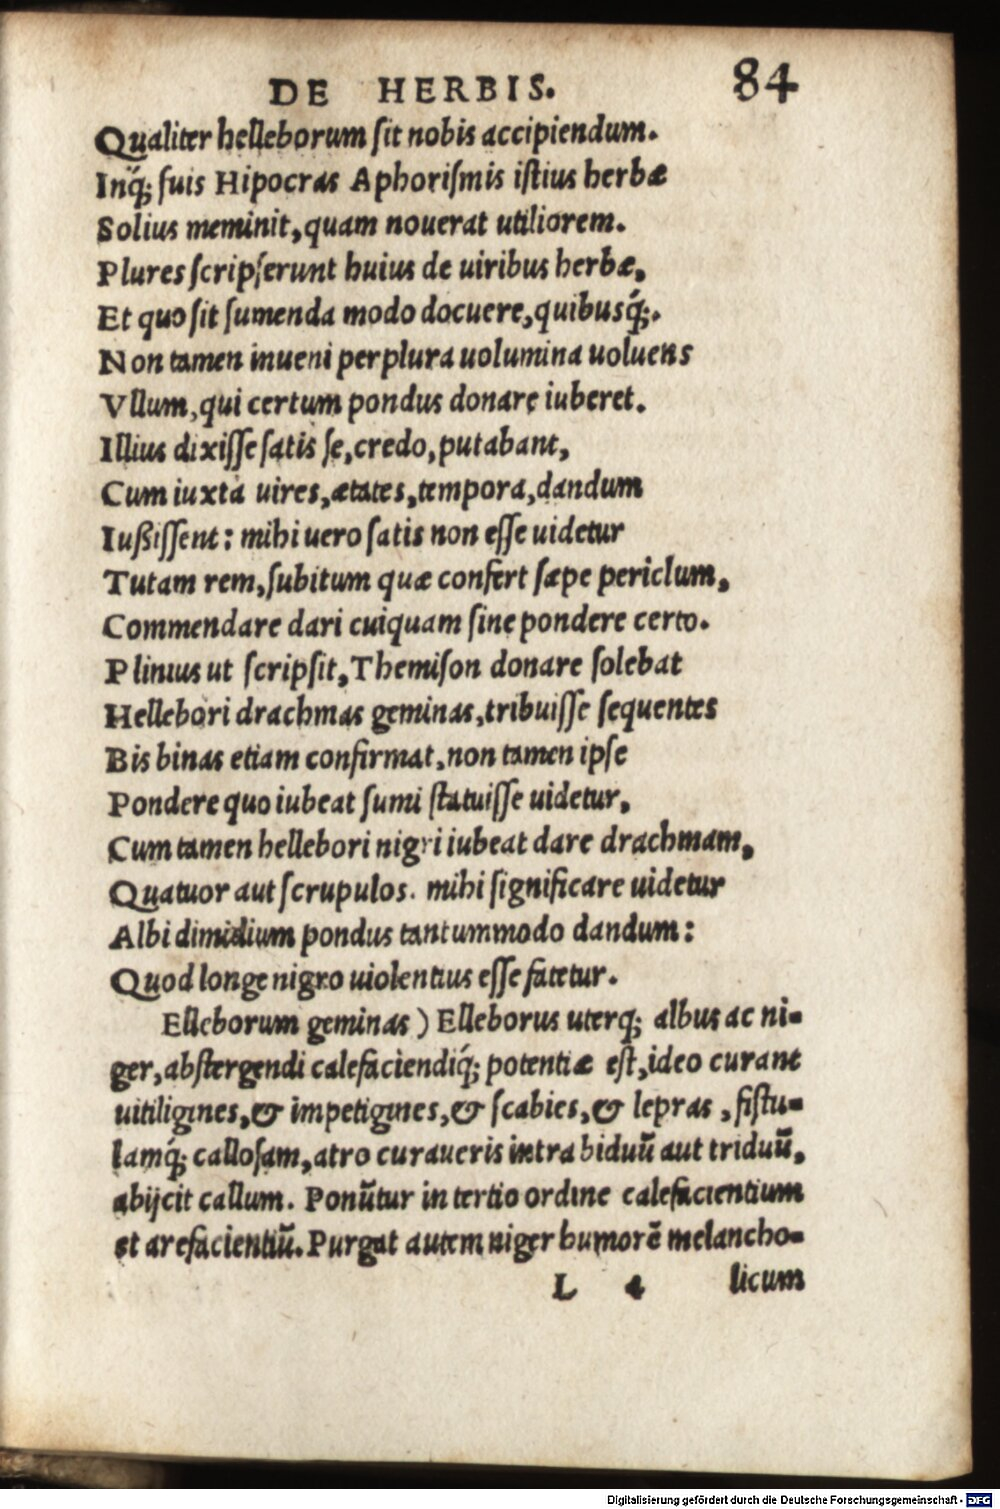 DE HERBIS. 84
Qualiter helleborum ſit nobis accipiendum.
Inq́; ſuis Hipocras Aphoriſmis iſtius herbæ
Solius meminit, quam nouerat utiliorem.
Plures ſcripſerunt huius de uiribus herbæ,
Et quo ſit ſumenda modo docuere, quibusq́;.
Non tamen inueni per plura uolumina uoluens
Vllum, qui certum pondus donare iuberet.
Illius dixiſſe ſatis ſe, credo, putabant,
Cum iuxta uires, ætates, tempora, dandum
Iuſsiſſent: mihi uero ſatis non eſſe uidetur
Tutam rem, ſubitum quæ confert ſæpe periclum,
Commendare dari cuiquam ſine pondere certo.
Plinius ut ſcripſit, Themiſon donare ſolebat
Hellebori drachmas geminas, tribuiſſe ſequentes
Bis binas etiam confirmat, non tamen ipſe
Pondere quo iubeat ſumi ſtatuiſſe uidetur,
Cum tamen hellebori nigri iubeat dare drachmam,
Quatuor aut ſcrupulos. mihi ſignificare uidetur
Albi dimidium pondus tantummodo dandum:
Quod longe nigro uiolentius eſſe fatetur.
Elleborum geminas) Elleborus uterq; albus ac ni-
ger, abſtergendi calefaciendiq́; potentiæ eſt, ideo curant
uitiligines, & impetigines, & ſcabies, & lepras, fiſtu-
lamq́; calloſam, atro curaueris intra biduũ aut triduũ,
abijcit callum. Ponũtur in tertio ordine calefacientium
et arefacientiũ. Purgat autem niger humorẽ melancho-
L 4 licum
Digitalisierung gefördert durch die Deutsche Forschungsgemeinschaft - DFG